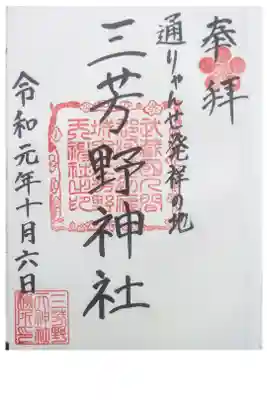 奉拝
通りゃんせ発祥の地
三芳野神社
令和元年十月六日